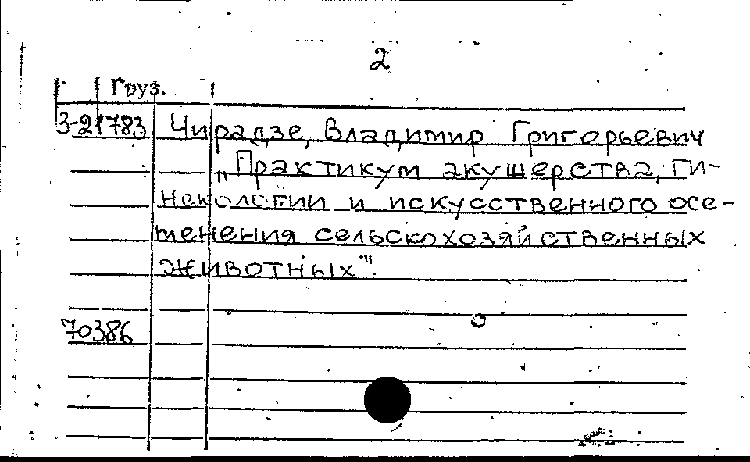 2
Груз.
3-21783 Чирадзе, Владимир Григорьевич
„Практикум акушерства, ги-
некологии и искусственного осе-
менения сельскохозяйственных
животных".
70386